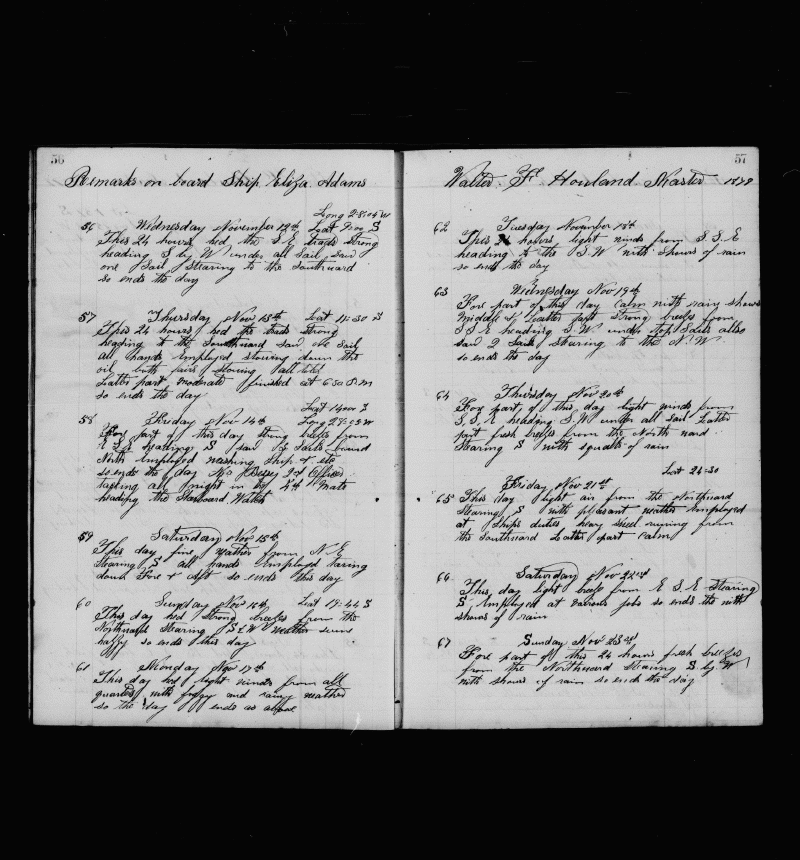 56
Remarks on board Ship Eliza Adams
Long 28:04 W
56 Wednesday November 12th Lat S
This 24 hours had the S E trads strong
heading S by W under all sail saw
one Sail Stearing to the Southward
so ends the day
57 Thursday Nov 13th Lat 11:30 S
This 24 hours had the trads strong
heading to the Southward saw no sail
all hands employed stowing down the
oil both
Latter part moderate finished at 6 30 P M
so ends the day
Lat 14:00 S
58 Friday Nov 14th Long 28:05 W
Fore part of this day strong breeses from
E S E heading S saw Sails bound
North employed washing ship & etc
so ends the day Mr 2d Officer
all night in 4th Mate
heading the Starboard Watch
59 Saturday Nov 15th
This day fine weather from N E
Stearing S all hands employed taring
down Fore & Aft so ends this day
60 Sunday Nov 16th Lat 19:44 S
This day had strong breeses from the
Northward Stearing weather some
so ends this day
61 Monday Nov 17th
This day had light winds from all
quarters with foggy and rainy weather
so the day ends as above
57
Walter F. Howland Master 1879
62 Tuesday November 18th
This 24 hours light winds from S S E
heading to the S W with shours of rain
so ends the day
63 Wednesday Nov 19th
Fore part of this day calm with rain shours
Middle & Latter part strong breeses from
S S E heading S W under top Sails allso
saw 2 Sails stearing to the N W
so ends the day
64 Thursday Nov 20th
Fore part of this day light winds from
S, S, E heading S W under all sail Latter
part fresh breeses from the North ward
Stearing S with squals of rain
Lat 24-30
Friday Nov 21st
65 This day light air from the Northward
Stearing S with pleasant weather employed
at ships duties heavy swell runing from
the Southward Latter part calm
66 Saturday Nov 22nd
This day light breese from E S E Stearing
S employed at various jobs so ends the with
shours of rain
67 Sunday Nov 23rd
Fore part of this 24 hours fresh breeses
from the Northward Stearing S by W
with shours of rain so ends the day